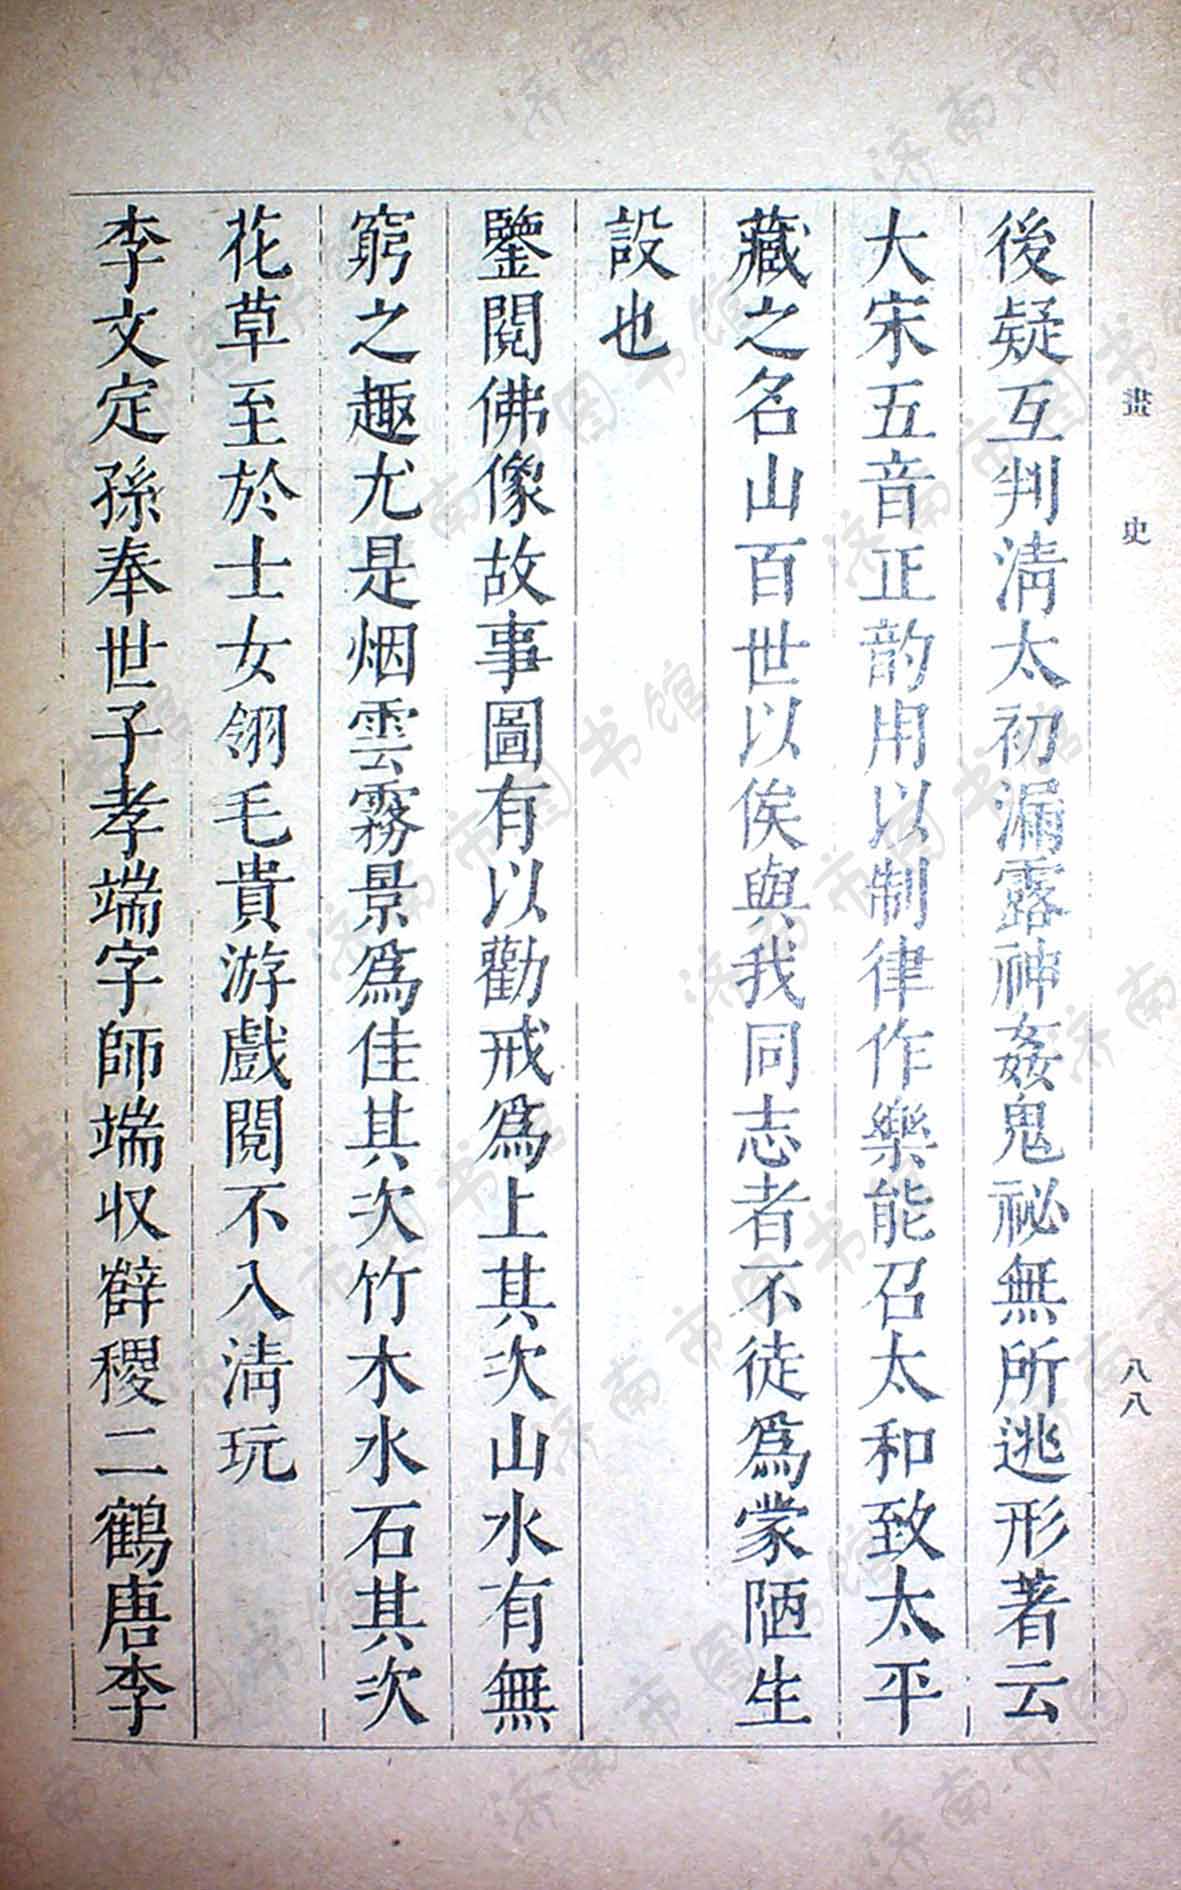 畫史
八八
後疑互判清太初漏露神姦鬼祕無所逃形著云
大宋五音正韵用以制律作樂能召太和致太平
藏之名山百世以俟與我同志者不徒爲蒙陋生
設也
鑒閱佛像故事圖有以勸戒爲上其次山水有無
窮之趣尤是烟雲霧景爲佳其次竹木水石其次
花草至於士女翎毛貴游戲閱不入清玩
李文定孫奉世子孝端字師端收薛稷二鶴唐李
济南市图书馆